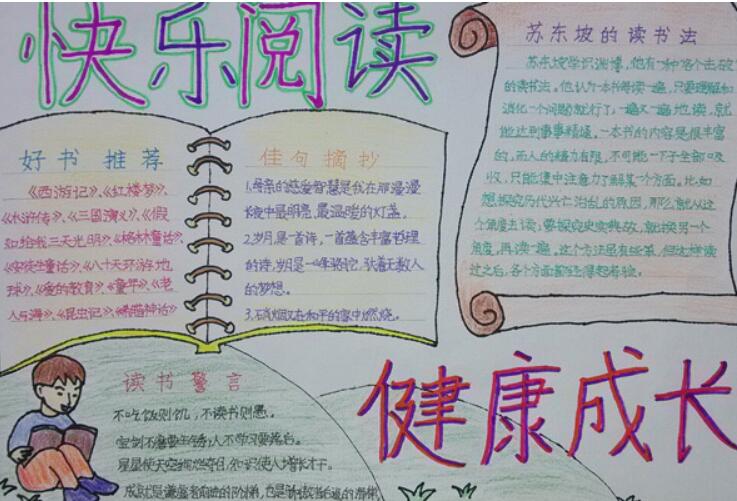 快乐阅读
好书推荐
《西游记》、《红楼梦》、
《水浒传》、《三国演义》、《假
如给我三天光明》、《格林童话》、
《安徒生童话》、《八十天环游地
球》、《爱的教育》、《童年》、《老
人与海》、《昆虫记》、《希腊神话》
佳句摘抄
1.母亲的慈爱智慧是我在那漫漫
长夜中最明亮、最温暖的灯盏。
2.岁月是一首诗，一首蕴含丰富哲理
的诗，岁月是一峰骆驼，驮着无数人
的梦想。
3.不 在和平的家中燃烧。
苏东坡的读书法
苏东坡学识渊博，他有一种各个击破
的读书法。他认为一本书每读一遍，只要理解和
消化一个问题就行了，一遍又一遍地读，就
能达到事事精通。一本书的内容是很丰富
的，而人的精力有限，不可能一下子全部吸
收，只能集中注意力了解某一个方面。比如
想探究历代兴亡治乱的原因，那么就从这
个角度去读；要探究史实典故，就换另一个
角度，再读一遍。这个方法虽有些笨，但这样读
过之后，各个方面都经得起考验。
读书警言
不吃饭则饥，不读书则愚。
宝剑不磨要生锈，人不学习要落后。
星星使天空绚烂夺目，知识使人增长才干。
成就是谦虚者前进的阶梯，也是骄傲者后退的滑梯
健康成长